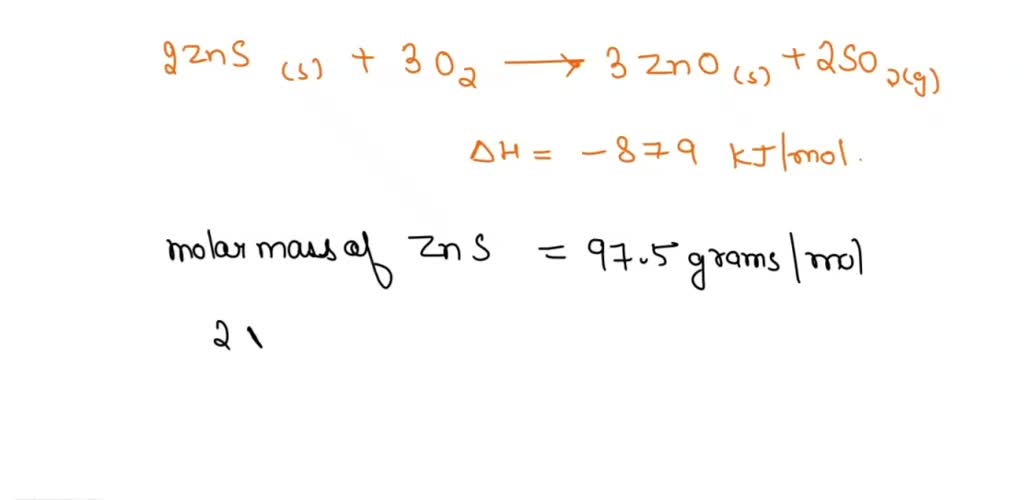 2ZnS (s) + 3O2 → 3ZnO (s) + 2SO2(g)
ΔH = -879 KJ/mol.
molar mass of ZnS = 97.5 grams/mol
2 \